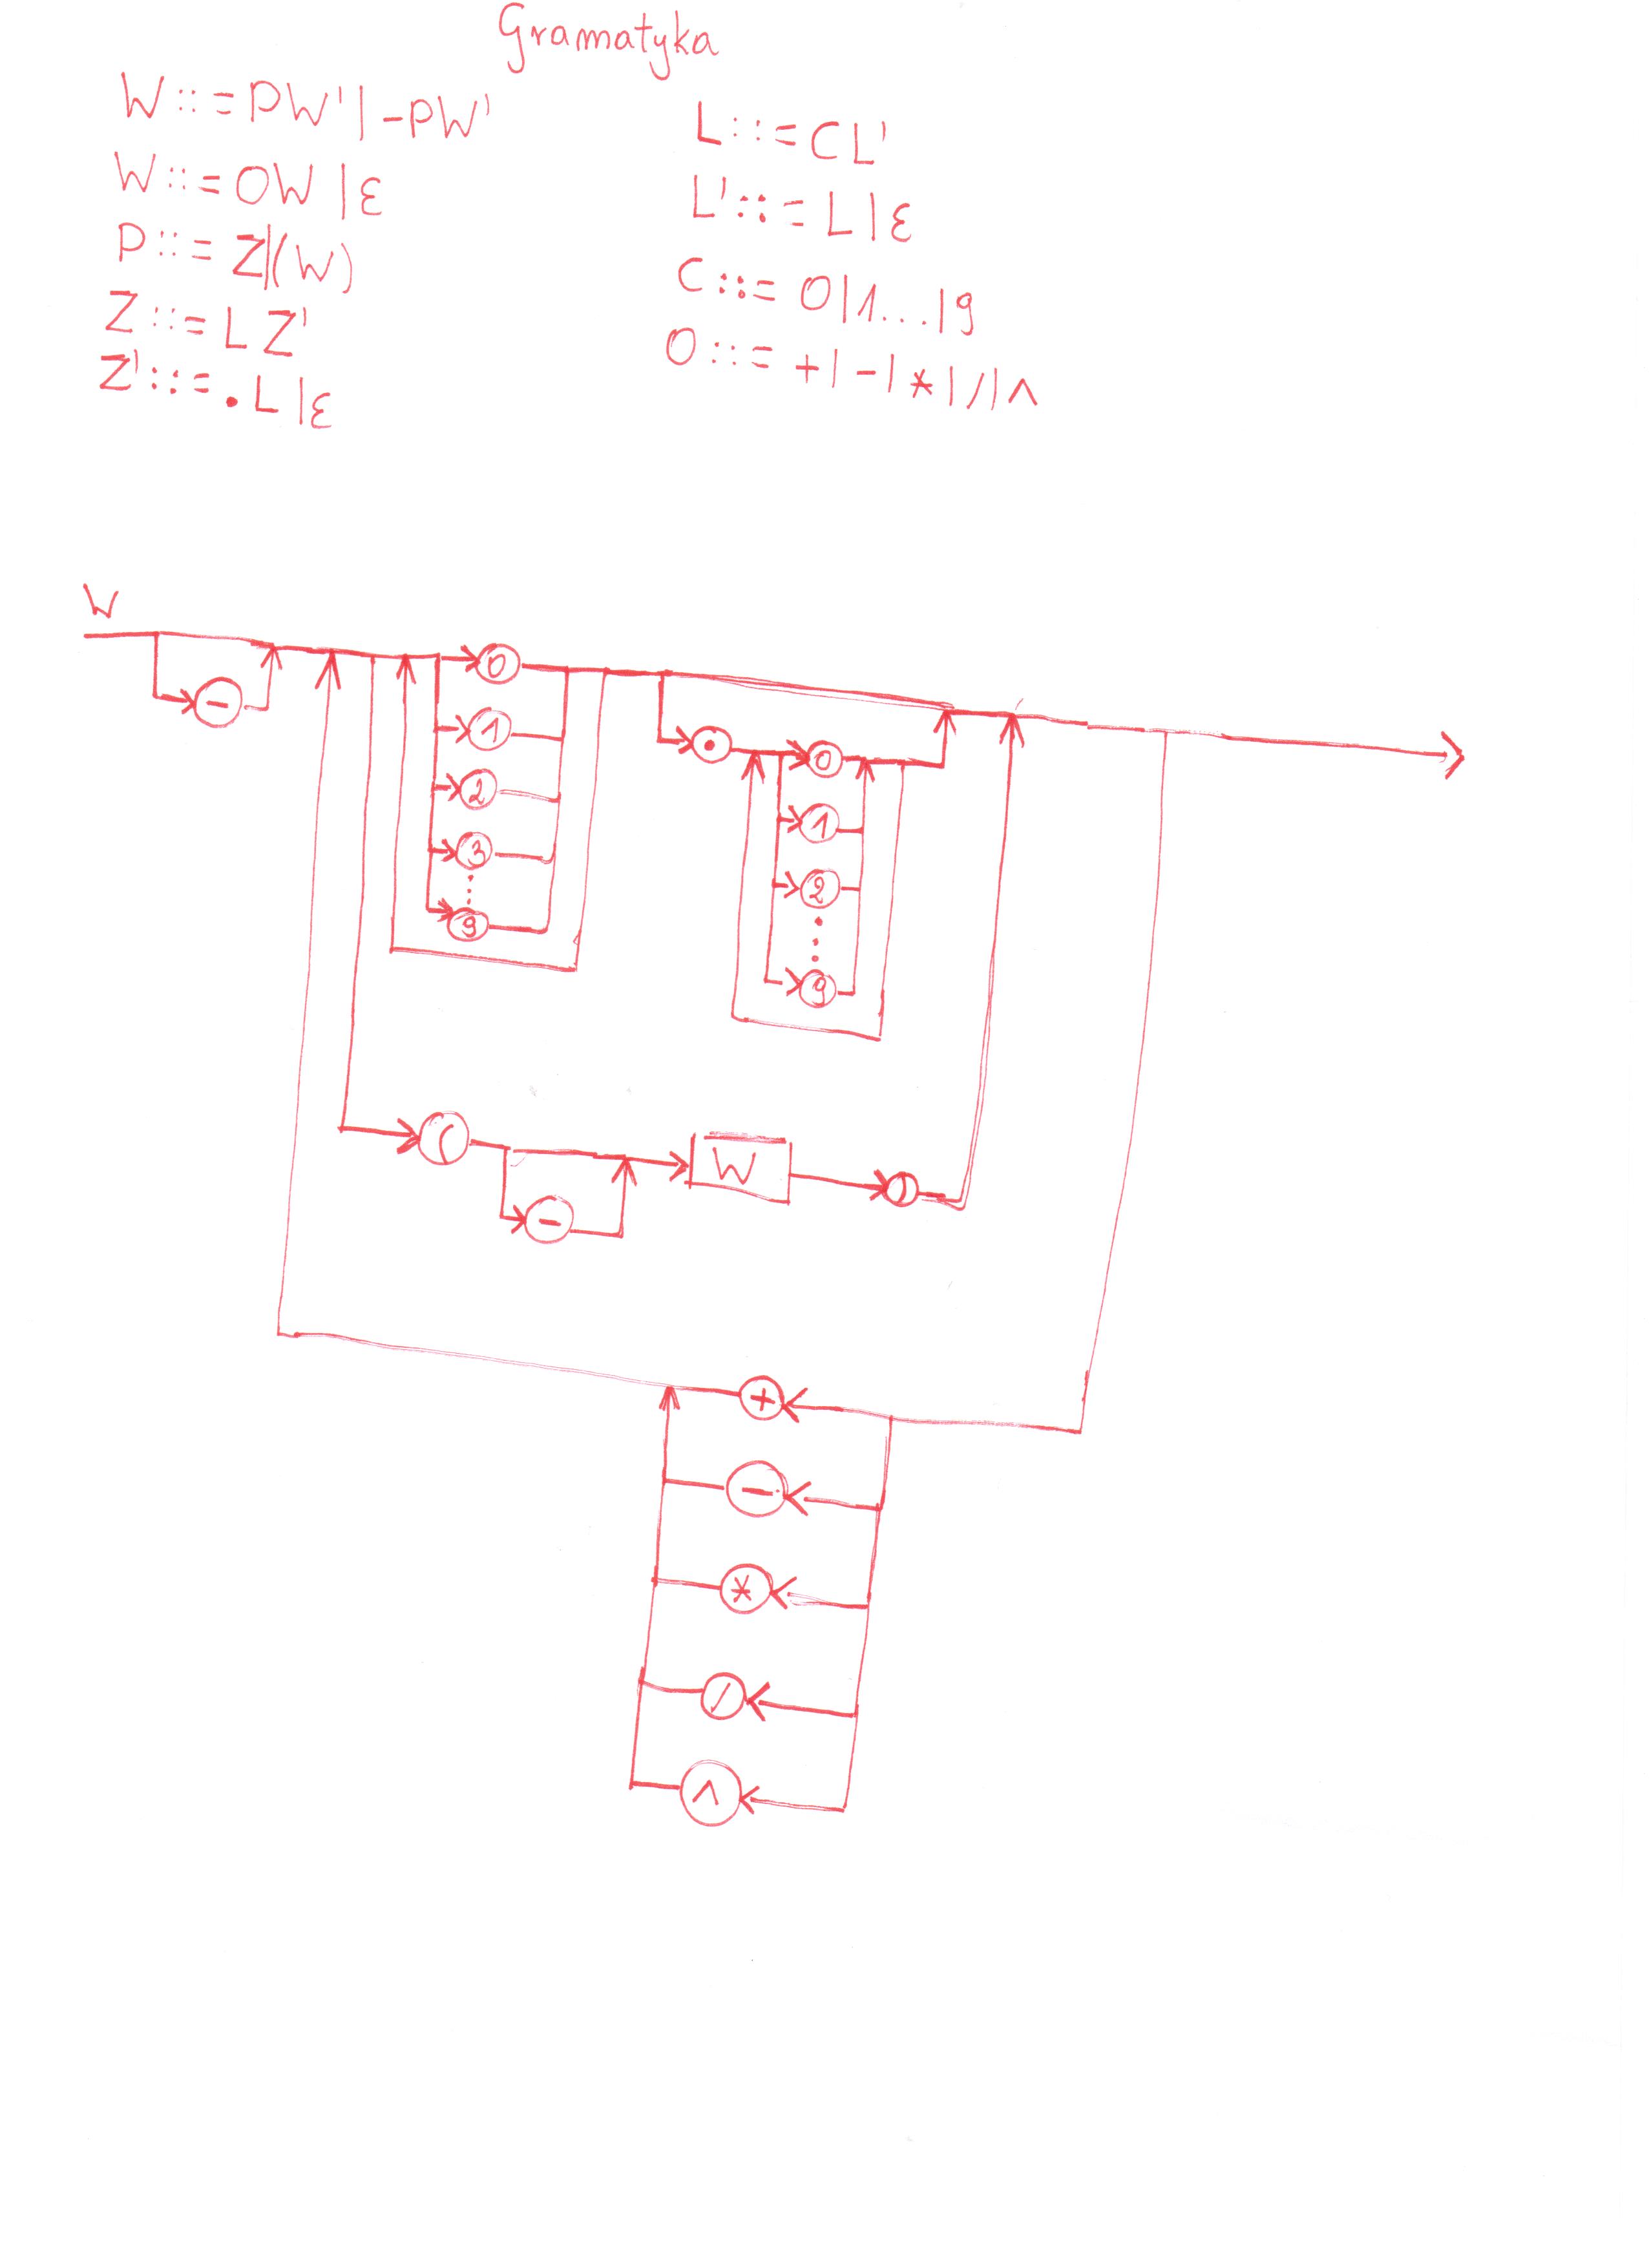 Gramatyka
W::=PW'|-PW'
W::=OW|ε
P::=Z|(W)
Z::=LZ'
Z'::=.L|ε
L::=CL'
L'::=L|ε
C::=0|1...|9
O::=+|-|*|/|^
W
-
0
1
2
3
⋮
9
.
0
1
2
⋮
9
(
-
W
)
+
-
*
/
^